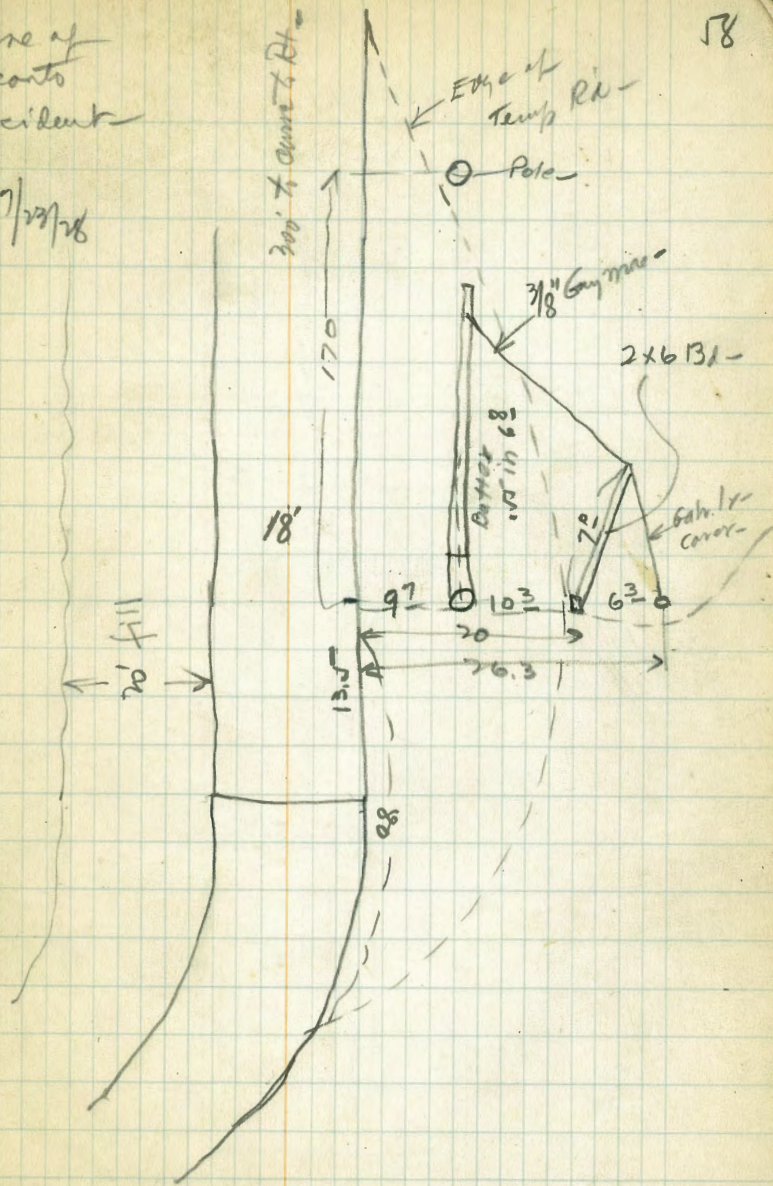 58
ne of
canto
cident
7/23/28
300' to curve to Rt.
Edge of
Temp Rd
Pole
3/8" Guy wire
2x6 Bd
170
Batter
.5 in 6 8
18'
7 0
Galv. Ir
cover
9 7
10 3
6 3
20
26.3
20' fill
13.5
80